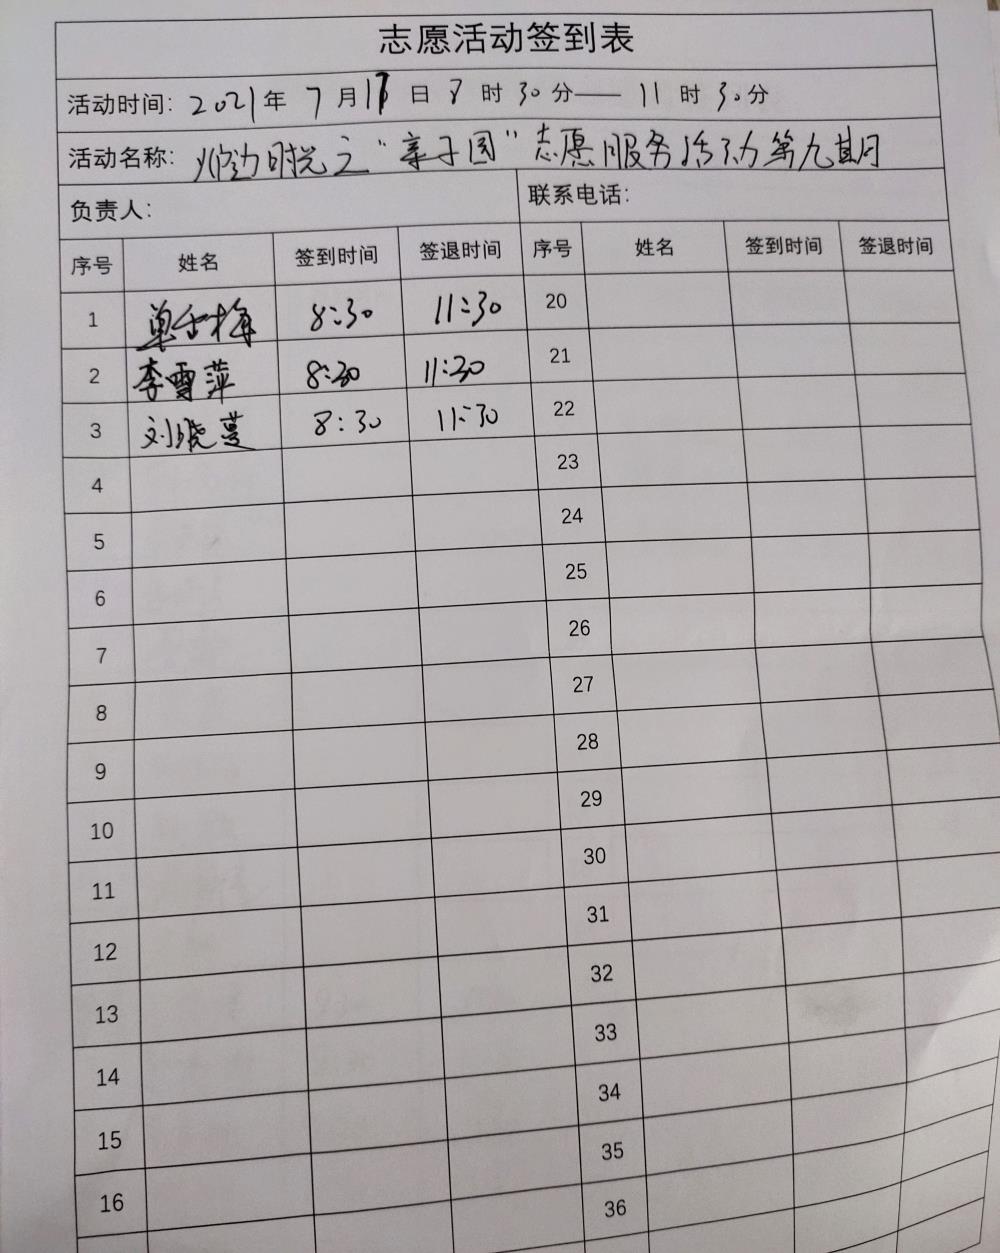 志愿活动签到表
活动时间: 2021年 7月 日 8时30分——11时30分
活动名称: 时光之"亲子园"志愿服务活动第九期
负责人: 联系电话:
序号 姓名 签到时间 签退时间 序号 姓名 签到时间 签退时间
1 8:30 11:30 20
2 李雪萍 8:30 11:30 21
3 刘晓蔓 8:30 11:30 22
4 23
5 24
6 25
7 26
8 27
9 28
10 29
11 30
12 31
13 32
14 33
15 34
16 35
36